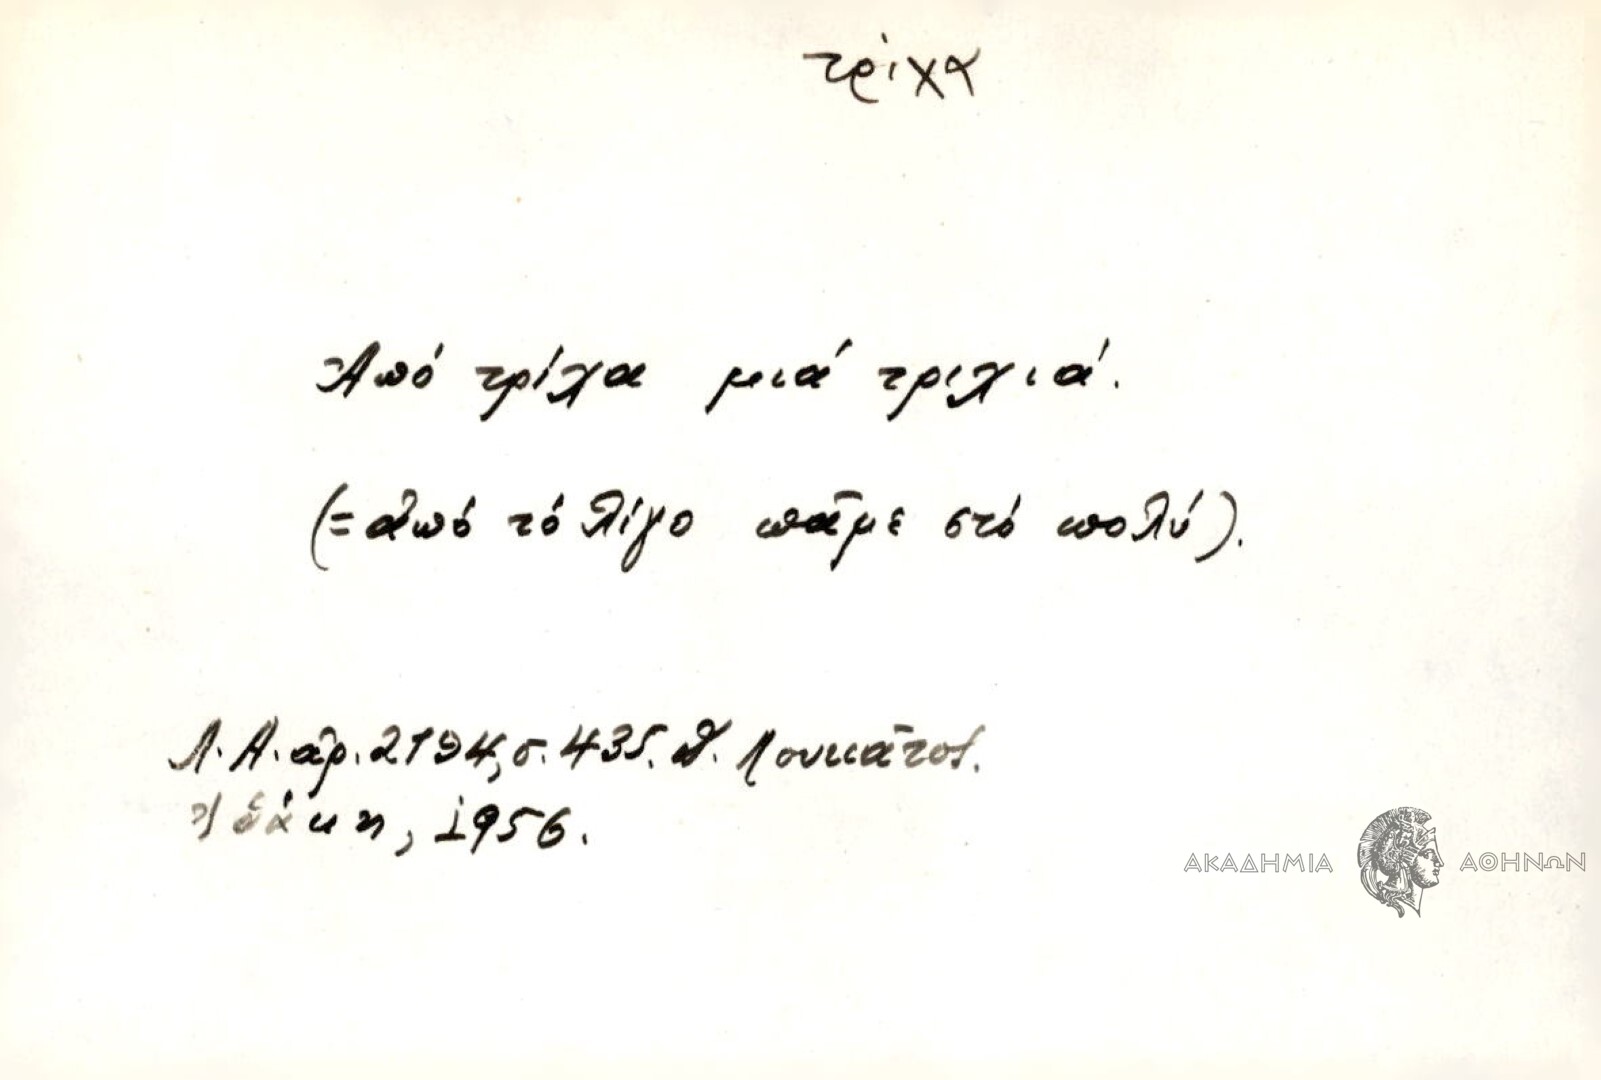 τρίχα
Ἀπό τρίχα μιά τριχιά.
(= ἀπό τό λίγο πᾶμε στό πολύ).
Λ.Α. ἀρ. 2194, σ. 435. Δ. Λουκᾶτος.
Ἰθάκη, 1956.
ΑΚΑΔΗΜΙΑ ΑΘΗΝΩΝ